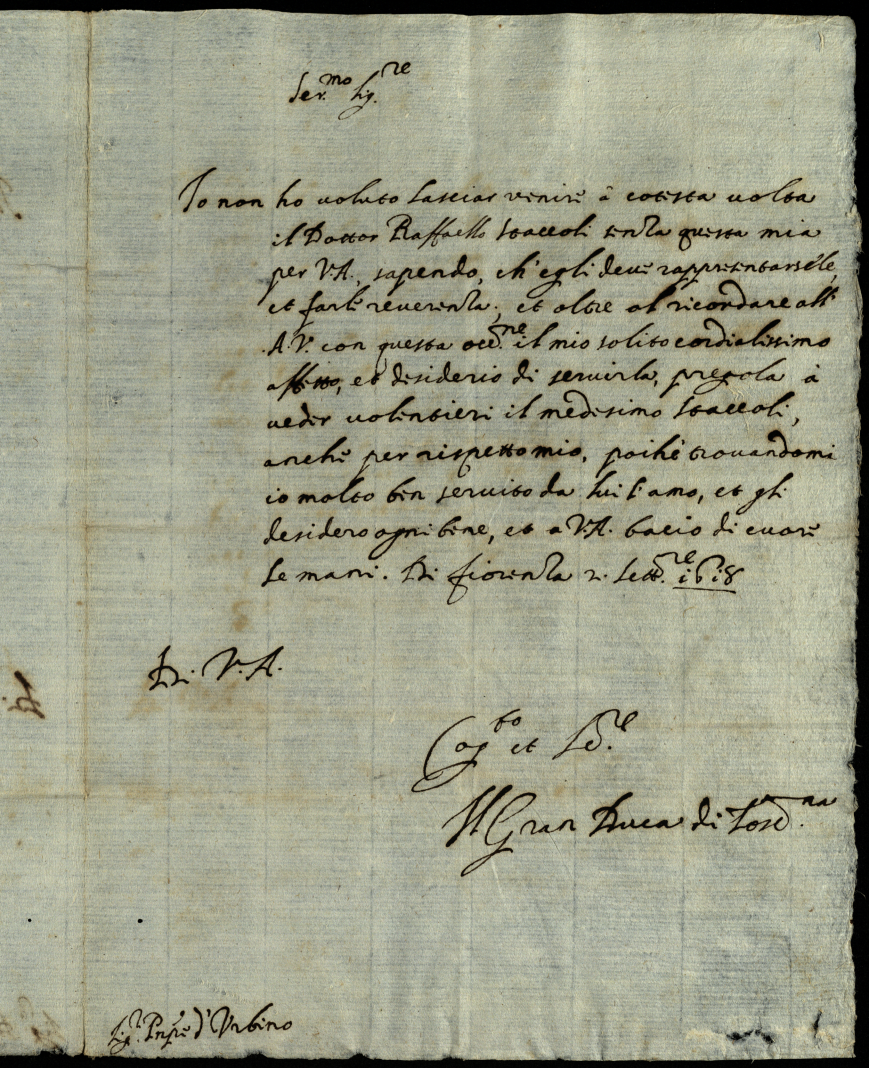 Ser.mo Sig.re
Io non ho voluto lasciar venire à cotesta volta
il Dottor Raffaello Staccoli senza questa mia
per V.A., sapendo, ch'egli deve rappresentarsele,
et farle reverenza; et oltre al ricordare all'
A.V. con questa occ.ne il mio solito cordialissimo
affetto, et desiderio di servirla, pregola à
veder volentieri il medesimo Staccoli,
anche per rispetto mio, poiché trovandomi
io molto ben servito da lui l'amo, et gli
desidero ogni bene, et a V.A. bacio di cuore
le mani. Di fiorenza 2. Sett.re 1618
Di V.A.
Cog.to et Se.re
Il Gran Duca di Tosc.na
Sig.r Pn'pe d'Urbino